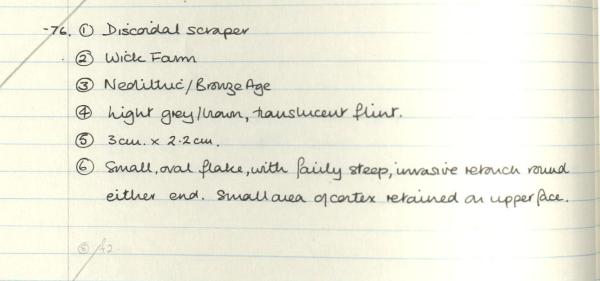 -76. ① Discoidal scraper
② Wick Farm
③ Neolithic/Bronze Age
④ Light grey/brown, translucent flint.
⑤ 3cm. x 2.2cm.
⑥ Small, oval flake, with fairly steep, invasive retouch round
either end. Small area of cortex retained on upper face.